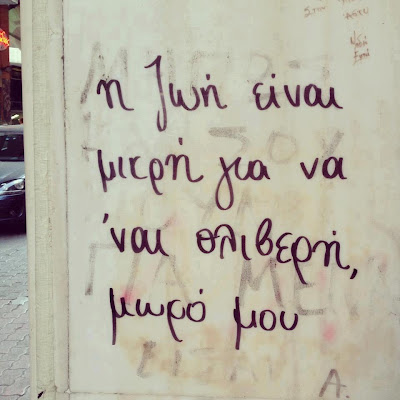 η ζωή είναι
μικρή για να
'ναι θλιβερή,
μωρό μου
Α.